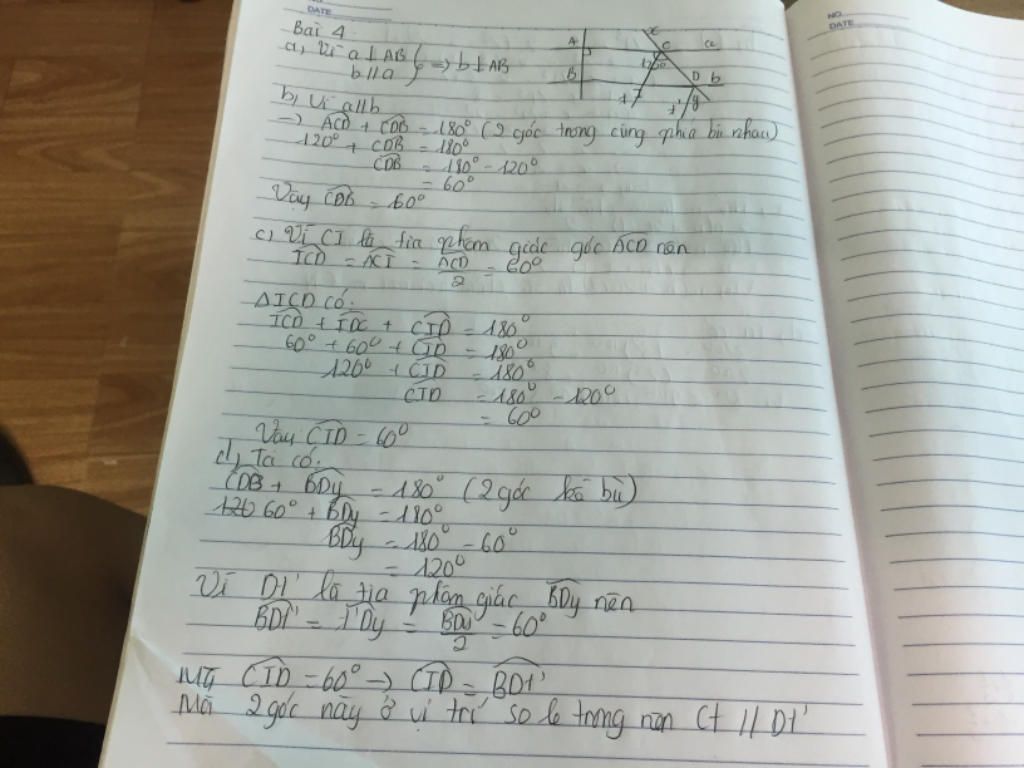 NO.
DATE
NO.
DATE
Bài 4
a, Vì a ⊥ AB
b // a } ⇒ b ⊥ AB
A
x
C
a
120°
B
D
b
I
t
t'
y
b, Vì a // b
→ ACD + CDB = 180° (2 góc trong cùng phía bù nhau)
120° + CDB = 180°
CDB = 180° - 120°
= 60°
Vậy CDB = 60°
c, Vì CI là tia phâm giác góc ACD nên
ICD = ACI = ACD/2 = 60°
ΔICD có:
ICD + IDC + CID = 180°
60° + 60° + CID = 180°
120° + CID = 180°
CID = 180° - 120°
= 60°
Vậy CID = 60°
d, Ta có:
CDB + BDy = 180° (2 góc kề bù)
120 60° + BDy = 180°
BDy = 180° - 60°
= 120°
Vì Dt' là tia phân giác BDy nên
BDt' = t'Dy = BDy/2 = 60°
Mà CID = 60° → CID = BDt'
Mà 2 góc này ở vị trí so le trong nên Ct // Dt'